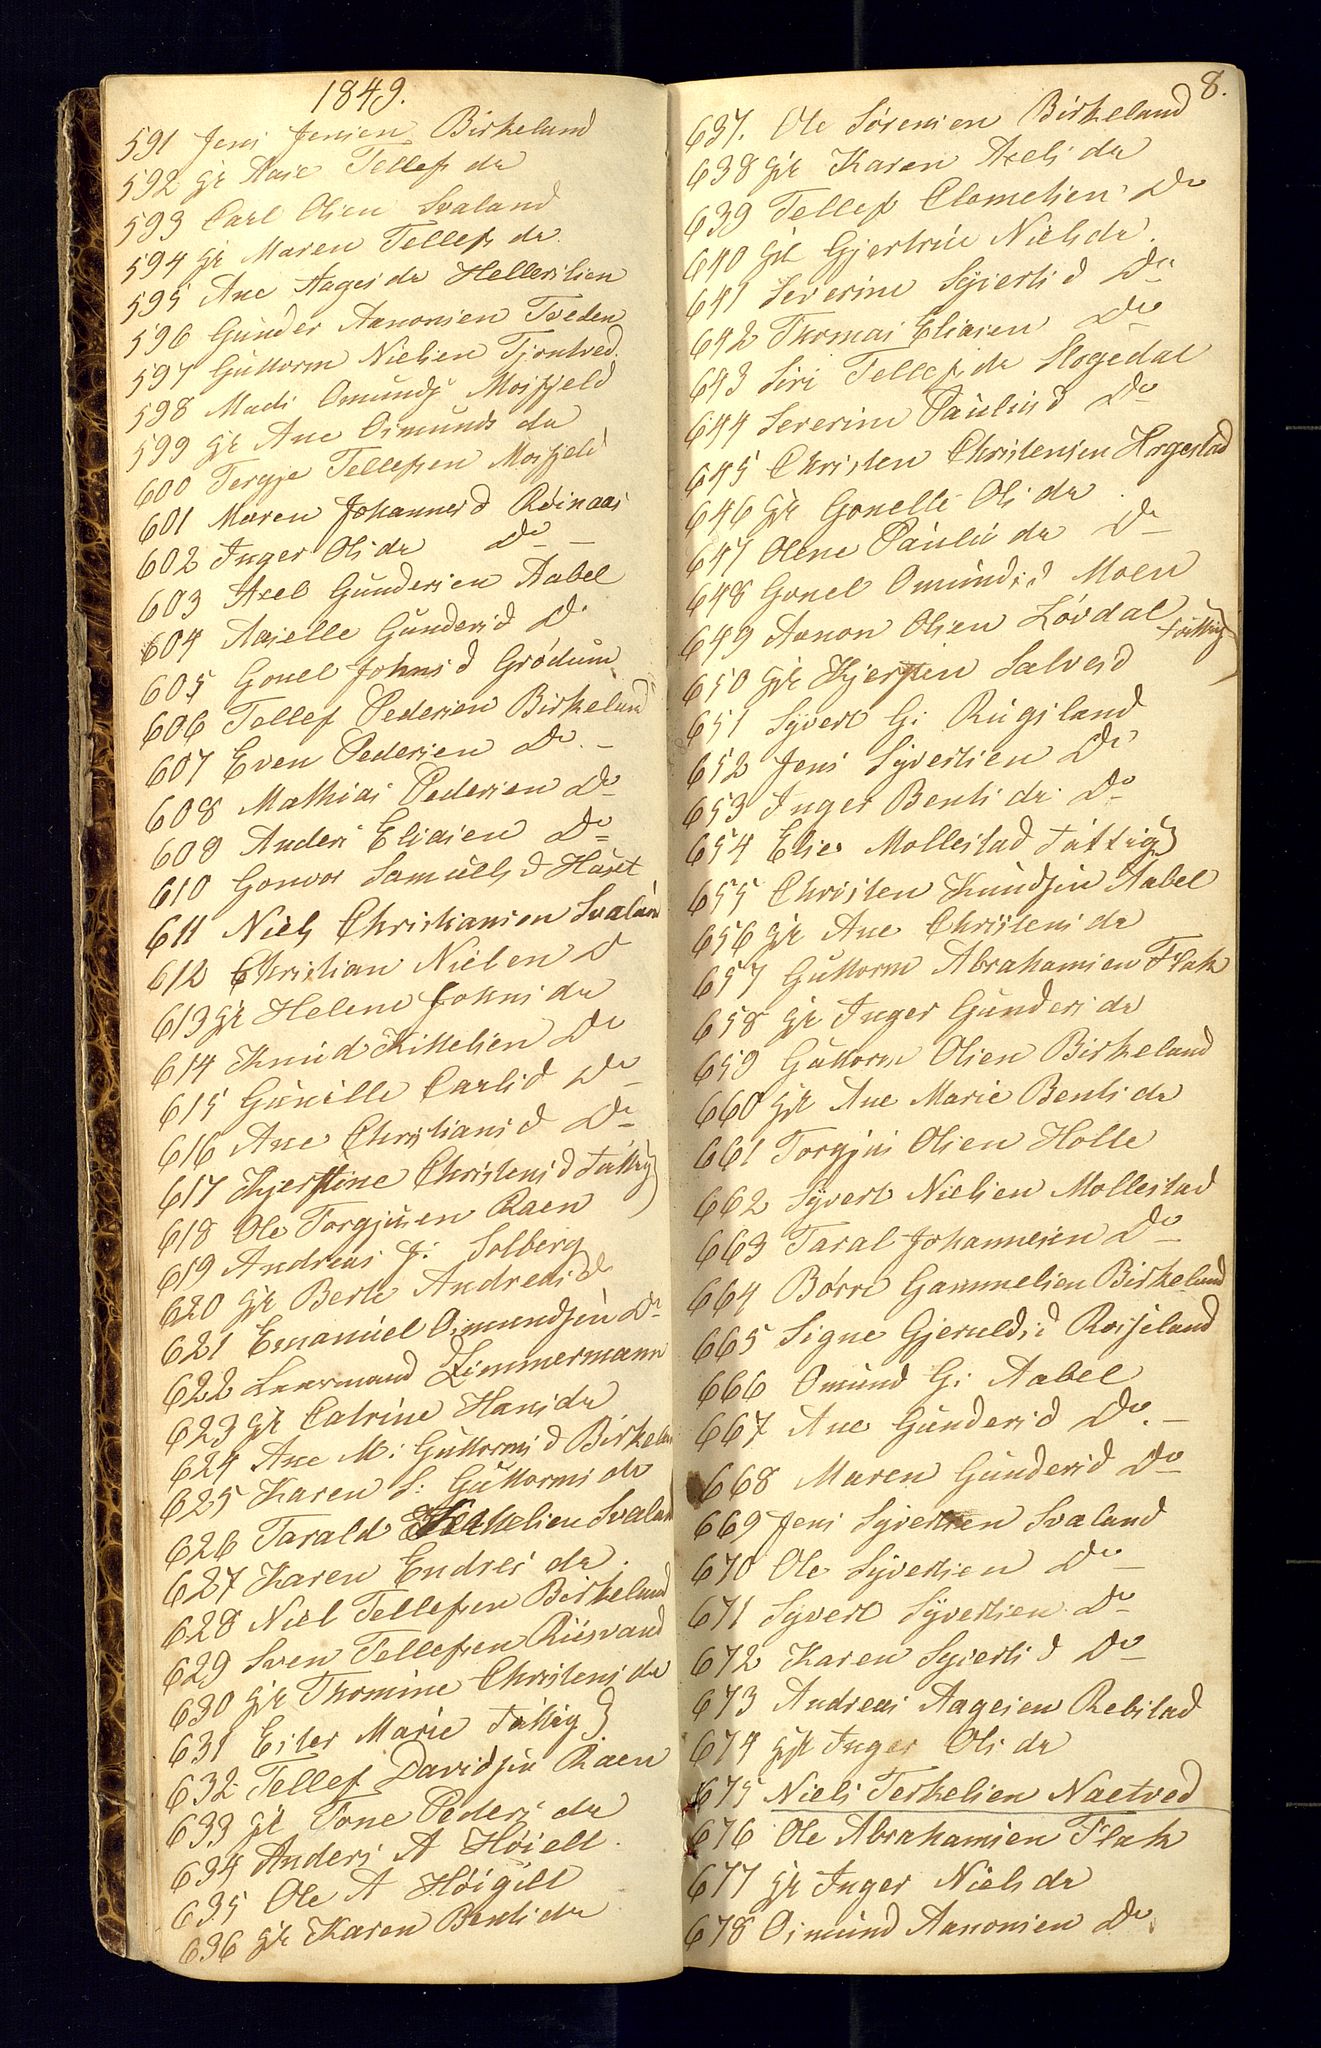 1849.
591 Jens Jensen Birkeland
592 gt Aase Tellefs da
593 Carl Olsen Svaland
594 gt Maren Tellefs da
595 Ane Aages da Hellerslien
596 Gunder Aanonsen Tveden
597 Guttorm Nielsen Tjontved
598 Mads Omunds Mosfjeld
599 gt Ane Osmunds da
600 Tergje Tellefsen Mosfjeld
601 Maren Johannesd Røinaas
602 Inger Ols da Do
603 Axel Gundersen Aabel
604 Asjelle Gundersd Do
605 Gonel Johnsd Grødum
606 Tellef Pedersen Birkeland
607 Even Pedersen Do
608 Mathias Pedersen Do
609 Anders Eliasen Do
610 Gonvor Samuelsd
611 Niels Christiansen Svaland
612 Christian Nielsen D
613 gt Helene Johns da
614 Knud Kittelsen Do
615 Gunille Carlsd Do
616 Ane Christiansd Do
617 Kjerstine Christensd fattig
618 Ole Torgjusen Raen
619 Andreas J: Solberg
620 gt Berte Andreas d
621 Emanuel Osmundsen Do
622 Zimmermann
623 gt Catrine Hans da
624 Ane M: Guttormsd Birkeland
625 Karen S: Guttorms da
626 Tarald Svaland
627 Karen Endres da
628 Niel Tellefsen Birkeland
629 Sven Tellefsen Riisvand
630 gt Thomine Christens da
631 Ester Marie fattig
632 Tellef Davidsen Raen
633 gt Tone Peders da
634 Anders A Høigilt
635 Ole A Høigilt
636 gt Karen Bents da
8.
637. Ole Sørensen Birkeland
638 gt Karen Axels da
639 Tellef Clemetsen Do
640 gt Gjertrue Niels da
641 Severine Syvertsd Do
642 Thomas Eliasen Do
643 Siri Tellefs da Skogedal
644 Severine Paulusd Do
645 Christen Christensen Hogestad
646 gt Gonelle Ols da
647 Olene Paulus da Do
648 Gonel Omundsd Moen
649 Aanon Olsen Løvdal fattig
650 gt Kjersten Salvesd
651 Syvert G: Rugsland
652 Jens Syvertsen Do
653 Inger Bents da Do
654 Elies Mollestad fattig
655 Christen Knudsen Aabel
656 gt Ane Christens da
657 Guttorm Abrahamsen Flak
658 gt Inger Gunders da
659 Guttorm Olsen Birkeland
660 gt Ane Marie Bents da
661 Torgjus Olsen Holle
662 Syvert Nielsen Mollestad
663 Taral Johannesen Do
664 Børre Gammelsen Birkeland
665 Signe Gjeruldsd Rosseland
666 Omund G: Aabel
667 Ane Gundersd Do.
668 Maren Gundersd Do
669 Jens Syvertsen Svaland
670 Ole Syvertsen Do
671 Syvert Syvertsen Do
672 Karen Syvertsd Do
673 Andreas Aagesen Rebstad
674 gt Inger Ols da
675 Niels Terkelsen Naetved
676 Ole Abrahamsen Flak
677 gt Inger Niels da
678 Osmund Aanonsen Do